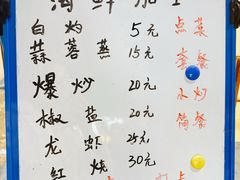 海鲜加工
白灼 5元 点菜
蒜蓉蒸 15元 套餐
爆炒 20元 小炒
椒盐 20元 简餐
龙虾 25元
红烧 30元